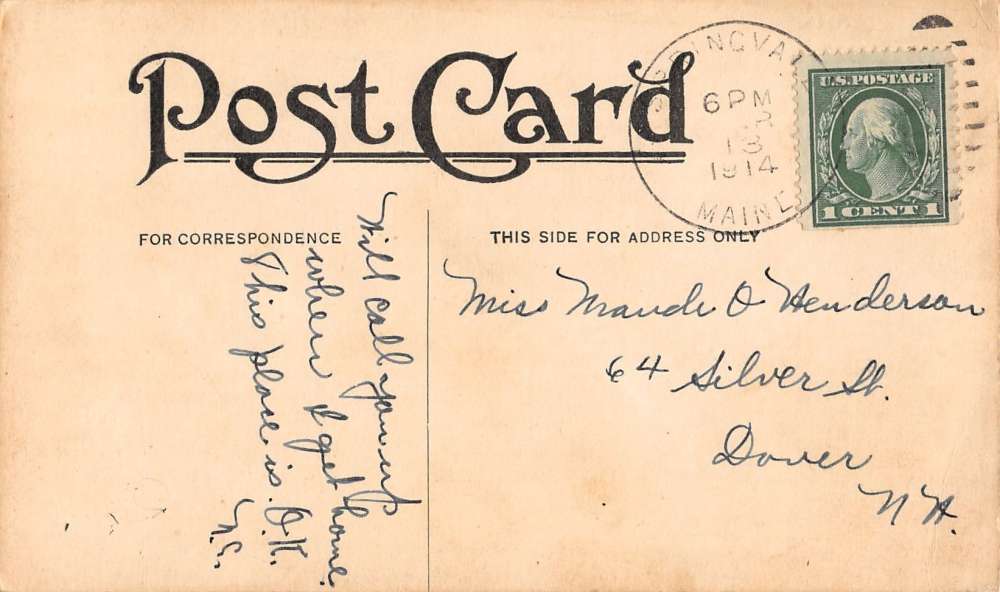 Post Card
SPRINGVALE
6 PM
13
1914
MAINE
U.S.POSTAGE
1 CENT 1
FOR CORRESPONDENCE
THIS SIDE FOR ADDRESS ONLY
Will call you up
when I get home.
This place is O.K.
Miss Maude O Henderson
64 Silver St.
Dover
N H.